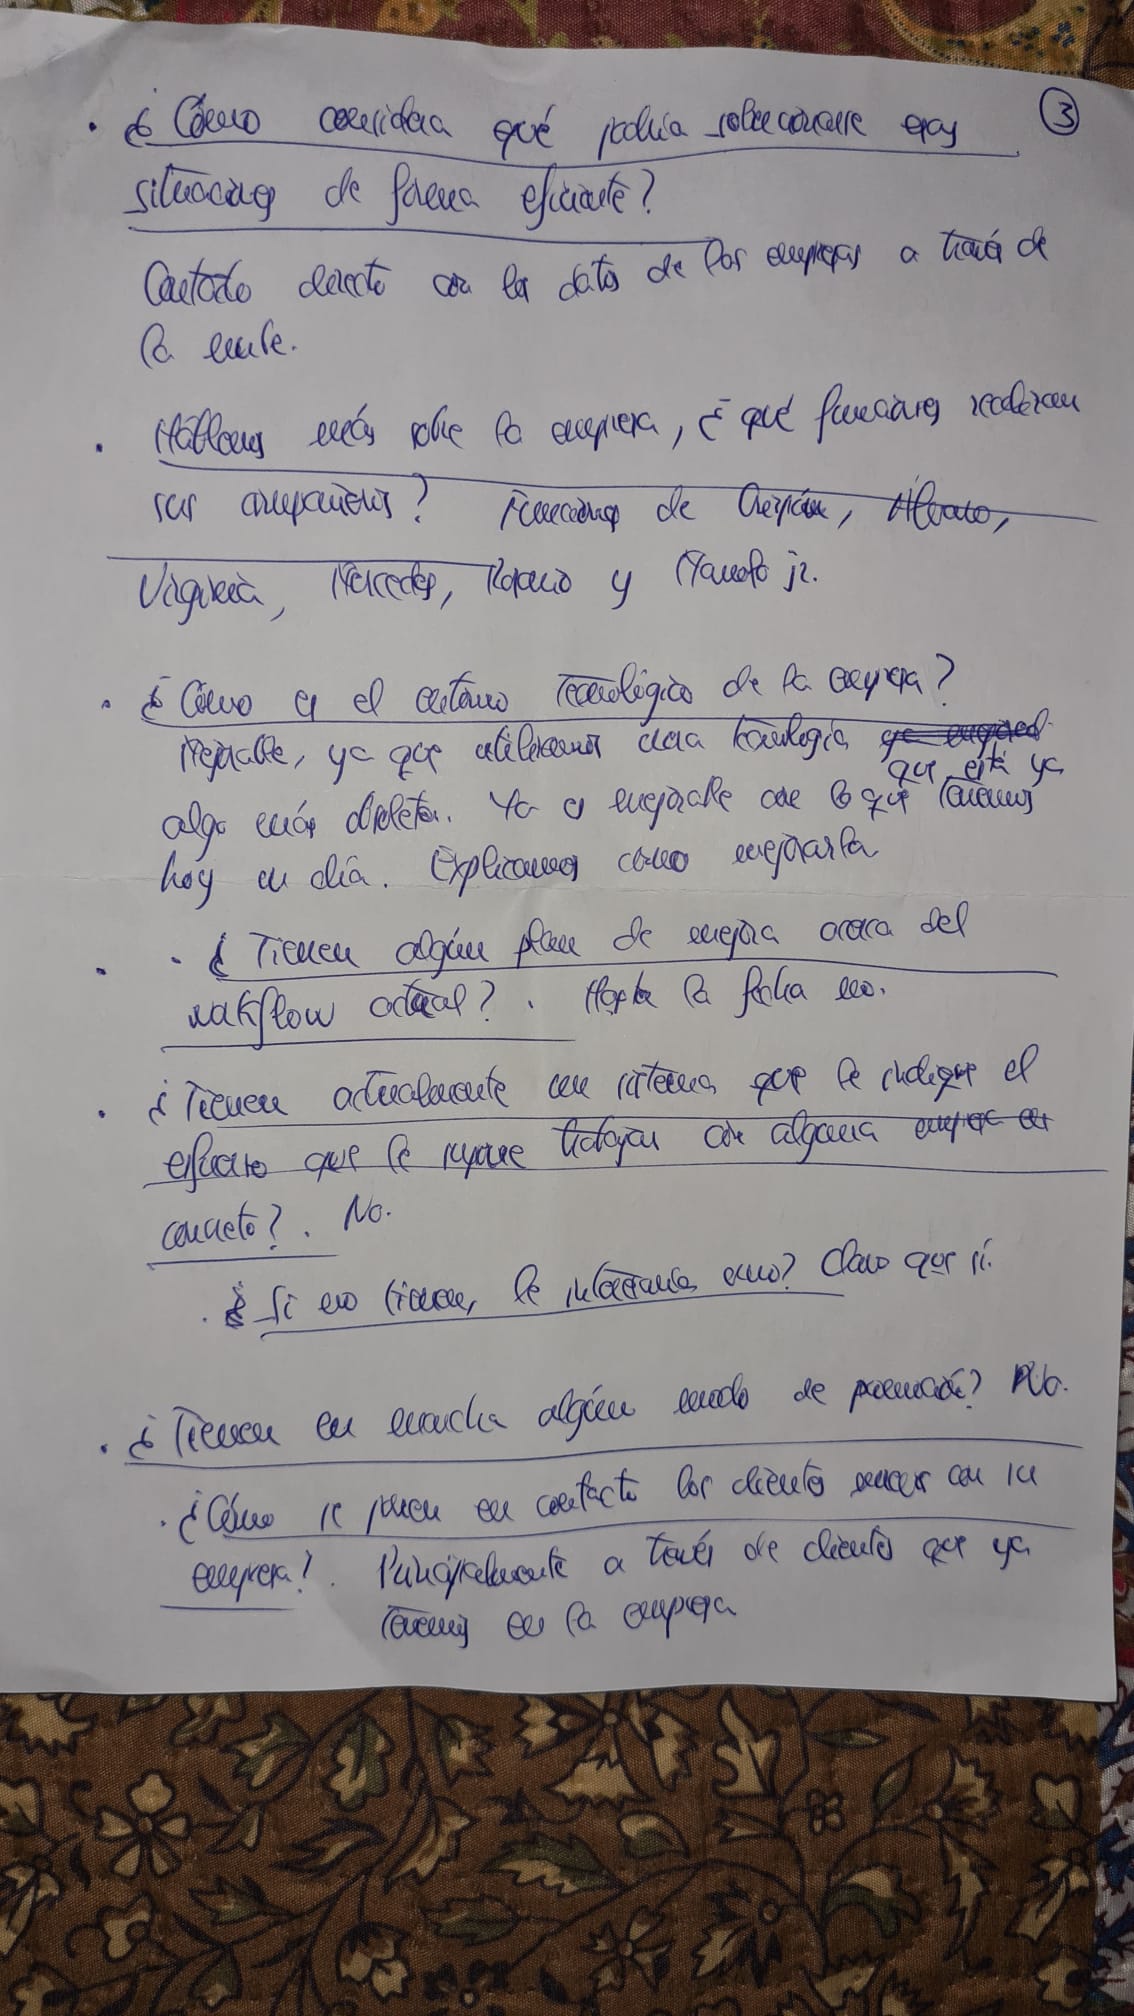 3
· ¿Cómo considera qué podría solucionarse esas
situaciones de forma eficiente?
Contacto directo con los datos de las empresas a través de
la nube.
· Háblenos más sobre la empresa, ¿qué funciones realizan
sus compañeros? Funciones de Álvaro,
Virginia, Mercedes, Rosario y Manolo jr.
· ¿Cómo es el entorno tecnológico de la empresa?
Mejorable, ya que utilizamos una tecnología
que está ya
algo más obsoleta. Ya es mejorable con lo que tenemos
hoy en día. Explicamos cómo mejorarla
· ¿Tienen algún plan de mejora acerca del
workflow actual? . Hasta la fecha no.
· ¿Tienen actualmente un sistema que le indique el
esfuerzo que le supone trabajar con alguna empresa en
concreto? . No.
· Si no tienen, le interesaría uno? Claro que sí.
· ¿Tienen en marcha algún modo de promoción? No.
· ¿Cómo se ponen en contacto los clientes nuevos con su
empresa? . Principalmente a través de clientes que ya
tenemos en la empresa